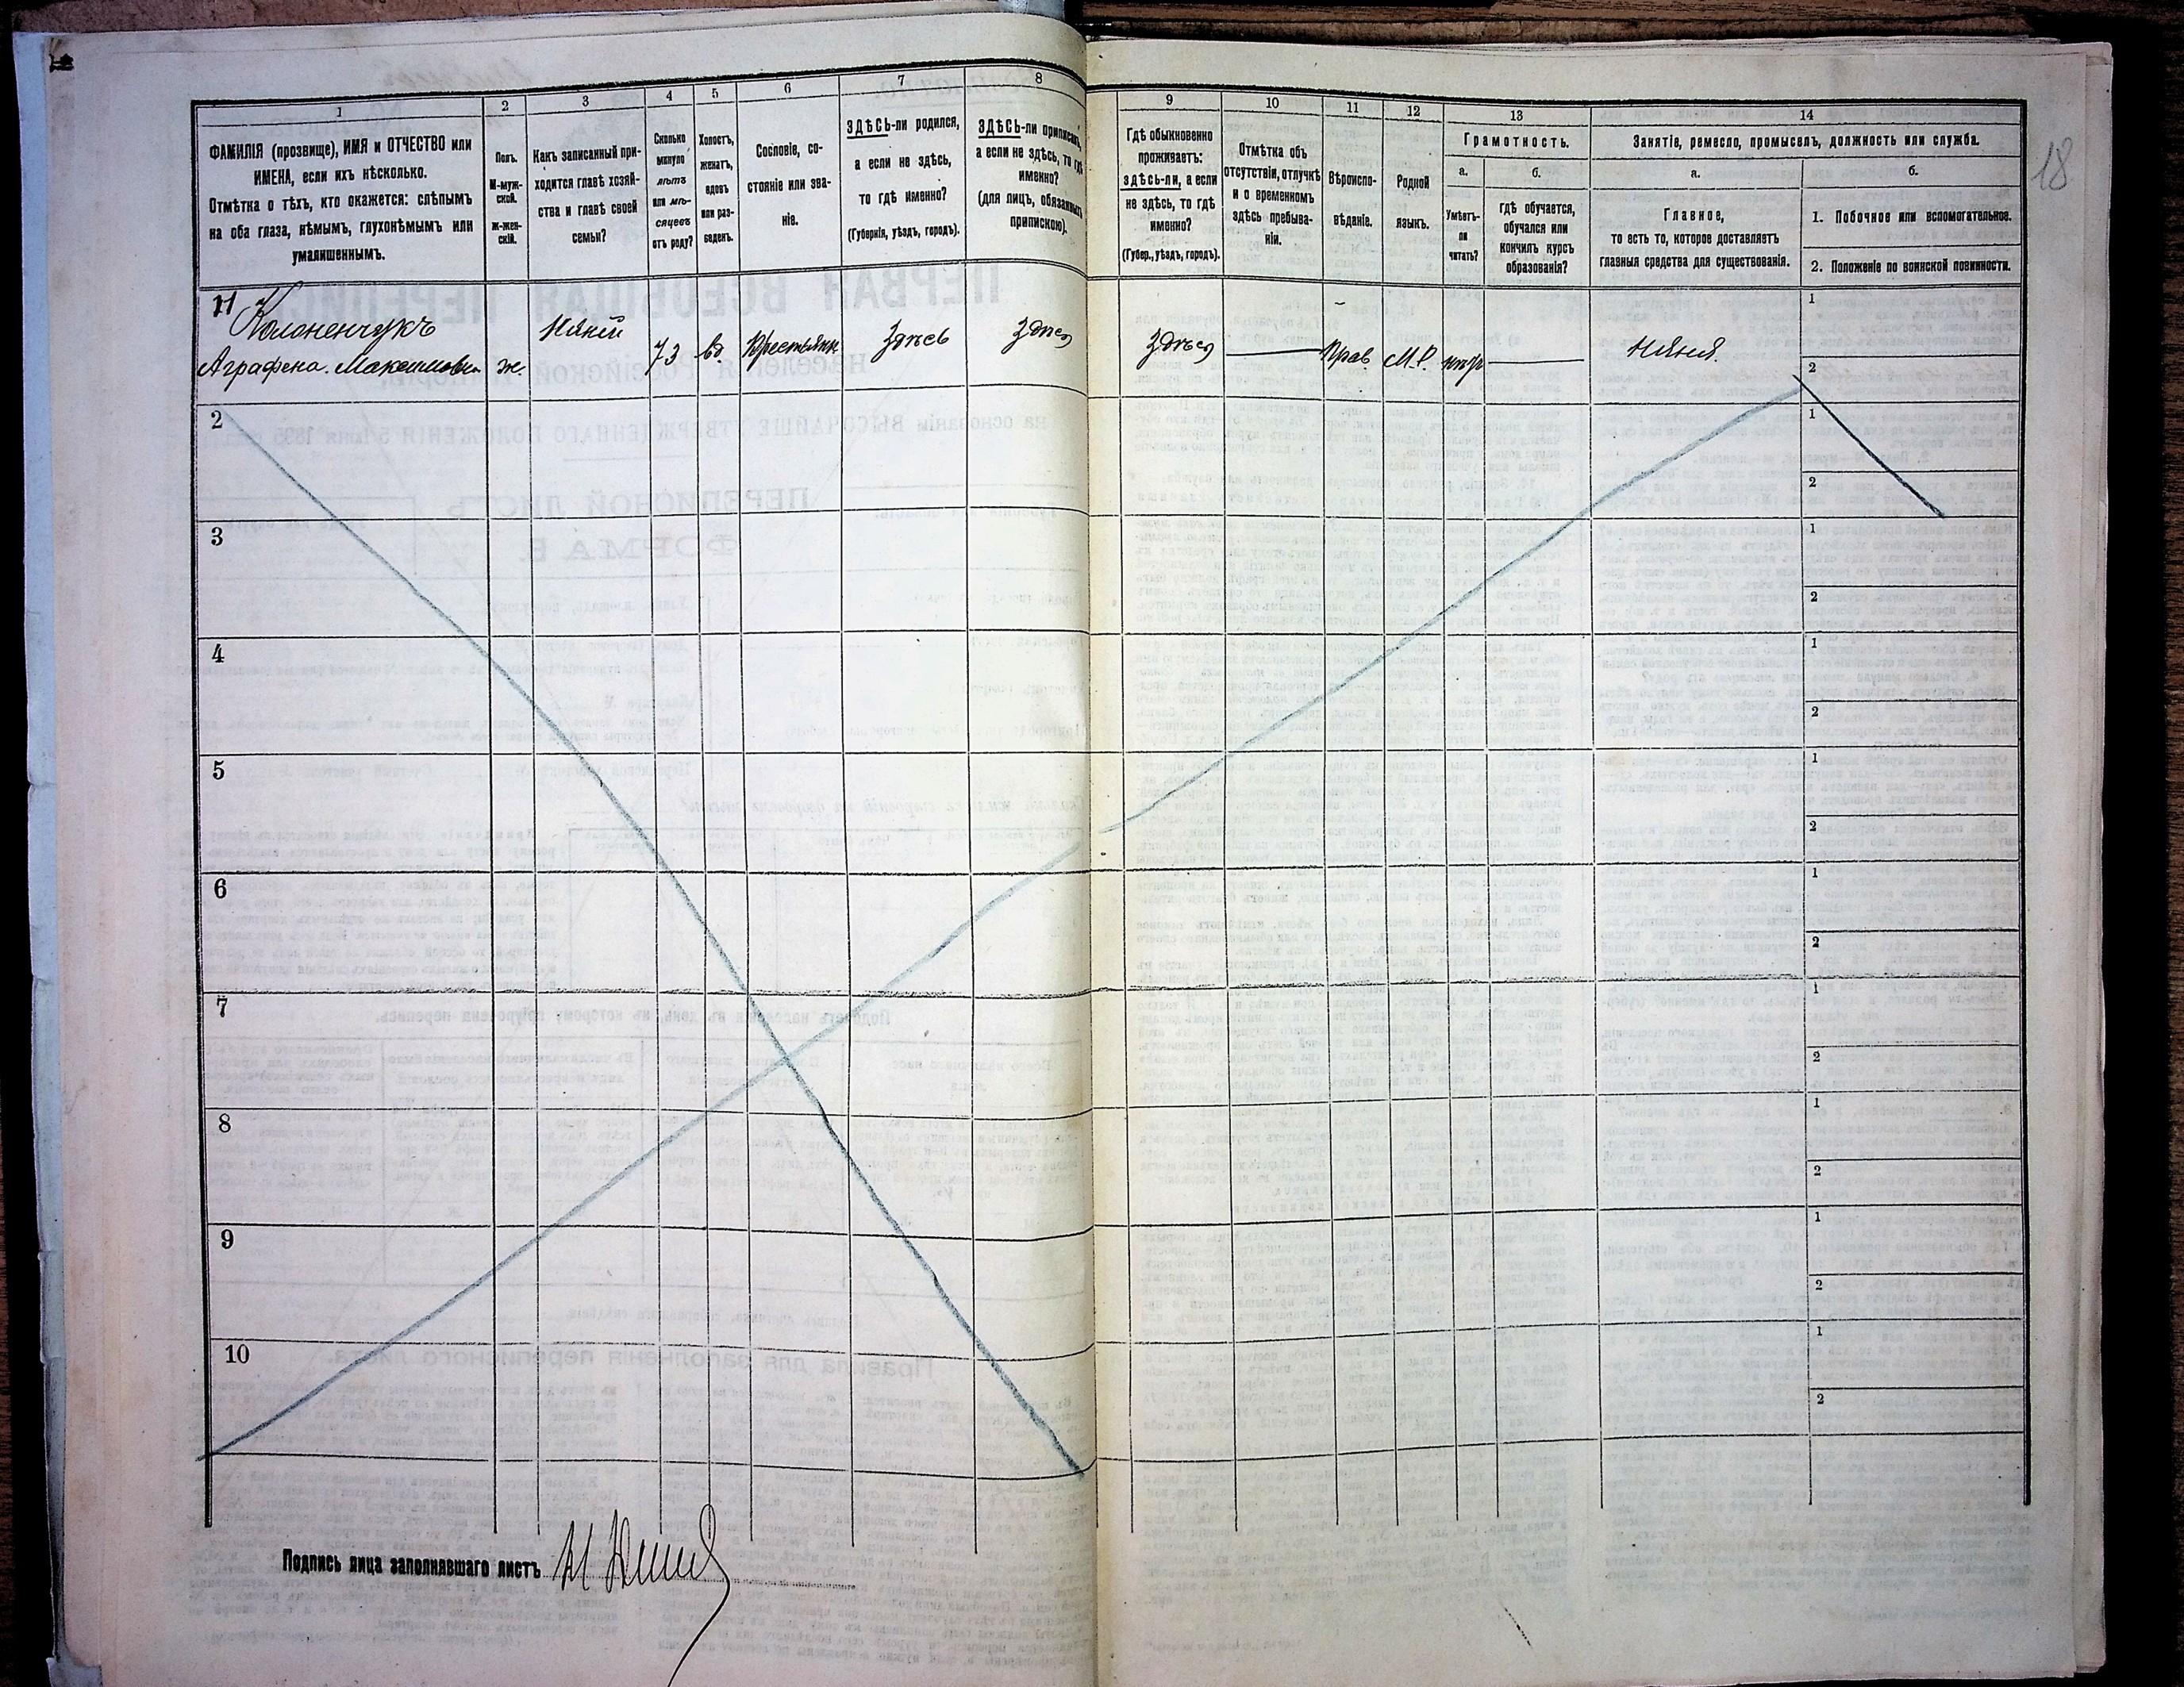 1
ФАМИЛІЯ (прозвище), ИМЯ и ОТЧЕСТВО или
ИМЕНА, если ихъ нѣсколько.
Отмѣтка о тѣхъ, кто окажется: слѣпымъ
на оба глаза, нѣмымъ, глухонѣмымъ или
умалишеннымъ.
2
Полъ.
М-муж-
ской.
Ж-жен-
скій.
3
Какъ записанный при-
ходится главѣ хозяй-
ства и главѣ своей
семьи?
4
Сколько
минуло
лѣтъ
или мѣ-
сяцевъ
отъ роду?
5
Холостъ,
женатъ,
вдовъ
или раз-
веденъ.
6
Сословіе, со-
стояніе или зва-
ніе.
7
ЗДѢСЬ-ли родился,
а если не здѣсь,
то гдѣ именно?
(Губернія, уѣздъ, городъ).
8
ЗДѢСЬ-ли приписанъ,
а если не здѣсь, то гдѣ
именно?
(для лицъ, обязанныхъ
припискою).
9
Гдѣ обыкновенно
проживаетъ:
здѣсь-ли, а если
не здѣсь, то гдѣ
именно?
(Губер., уѣздъ, городъ).
10
Отмѣтка объ
отсутствіи, отлучкѣ
и о временномъ
здѣсь пребыва-
ніи.
11
Вѣроиспо-
вѣданіе.
12
Родной
языкъ.
13
Грамотность.
а.
Умѣетъ-
ли
читать?
б.
гдѣ обучается,
обучался или
кончилъ курсъ
образованія?
14
Занятіе, ремесло, промыселъ, должность или служба.
а.
Главное,
то есть то, которое доставляетъ
главныя средства для существованія.
б.
1. Побочное или вспомогательное.
2. Положеніе по воинской повинности.
18
11
Аграфена Максимовна
ж.
Няней
73
вд.
Крестьянк
Здѣсь
Здѣсь
Здѣсь
Прав.
М.Р.
нѣтъ
Няня.
1
2
2
1
2
3
1
2
4
1
2
5
1
2
6
1
2
7
1
2
8
1
2
9
1
2
10
1
2
Подпись лица заполнявшаго листъ